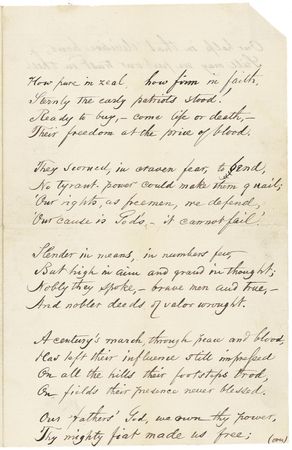 How pure in zeal, how firm in faith,
Sternly the early patriots stood!
Ready to buy, - come life or death, -
Their freedom at the price of blood.
They scorned, in craven fear, to bend,
No tyrant power could make them quail;
Our rights, as freemen, we defend,
Our cause is God's, - it cannot fail!
Slender in means, in numbers few,
But high in aim and grand in thought;
Nobly they spoke, - brave men and true, -
And nobler deeds of valor wrought.
A century's march, through peace and blood,
Has left their influence still impressed
On all the hills their footsteps trod,
On fields their presence never blessed.
Our fathers' God, we own thy power,
Thy mighty fiat made us free;
(over)